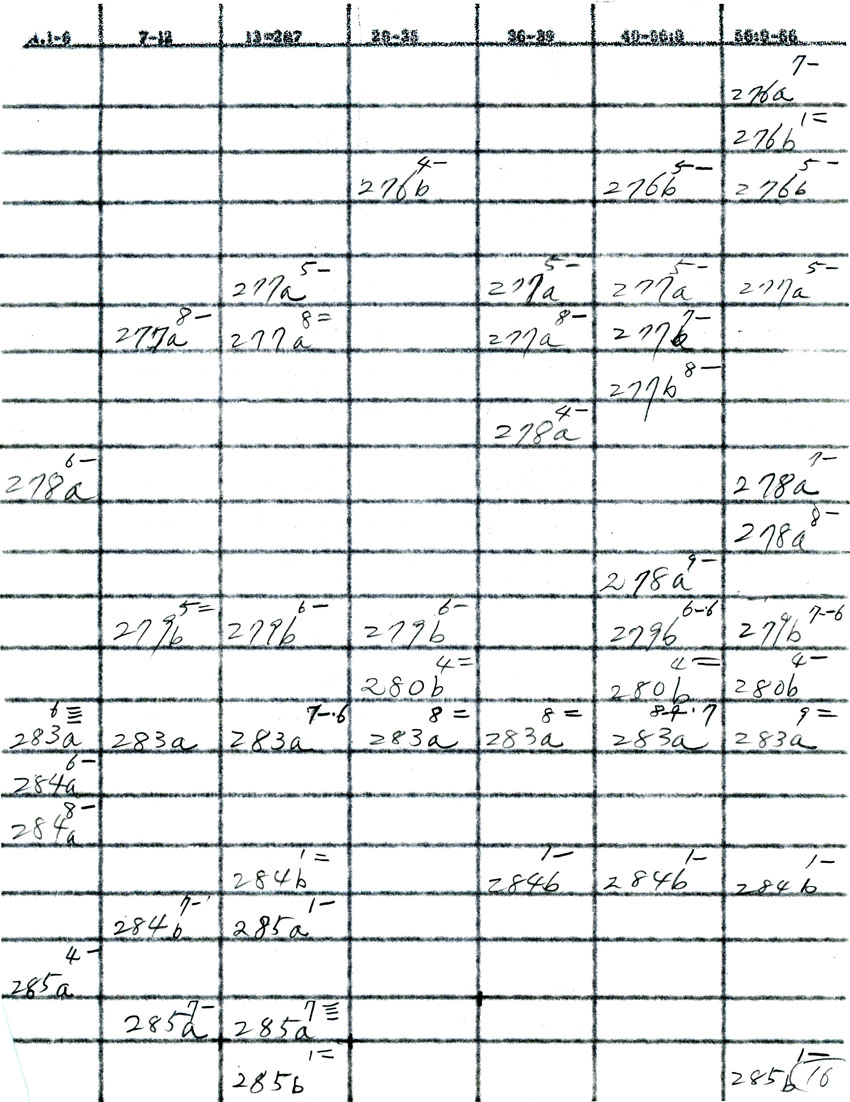 A.1-6 7-12 13-26? 26-35 36-39 40-55:8 55:9-66
276a 7-
276b 1=
276b 4- 276b 5- 276b 5-
277a 5- 277a 5- 277a 5- 277a 5-
277a 8- 277a 8= 277a 8- 277b 7-
277b 8-
278a 4-
278a 6- 278a 7-
278a 8-
278a 9-
279b 5= 279b 6- 279b 6- 279b 6-6 279b 7-6
280b 4= 280b 4= 280b 4-
283a 6≡ 283a 283a 7-.6 283a 8= 283a 8= 283a 8-9.7 283a 9=
284a 6-
284a 8-
284b 1= 284b 1- 284b 1- 284b 1-
284b 7- 285a 1-
285a 4-
285a 7- 285a 7≡
285b 1= 285b 1- 16